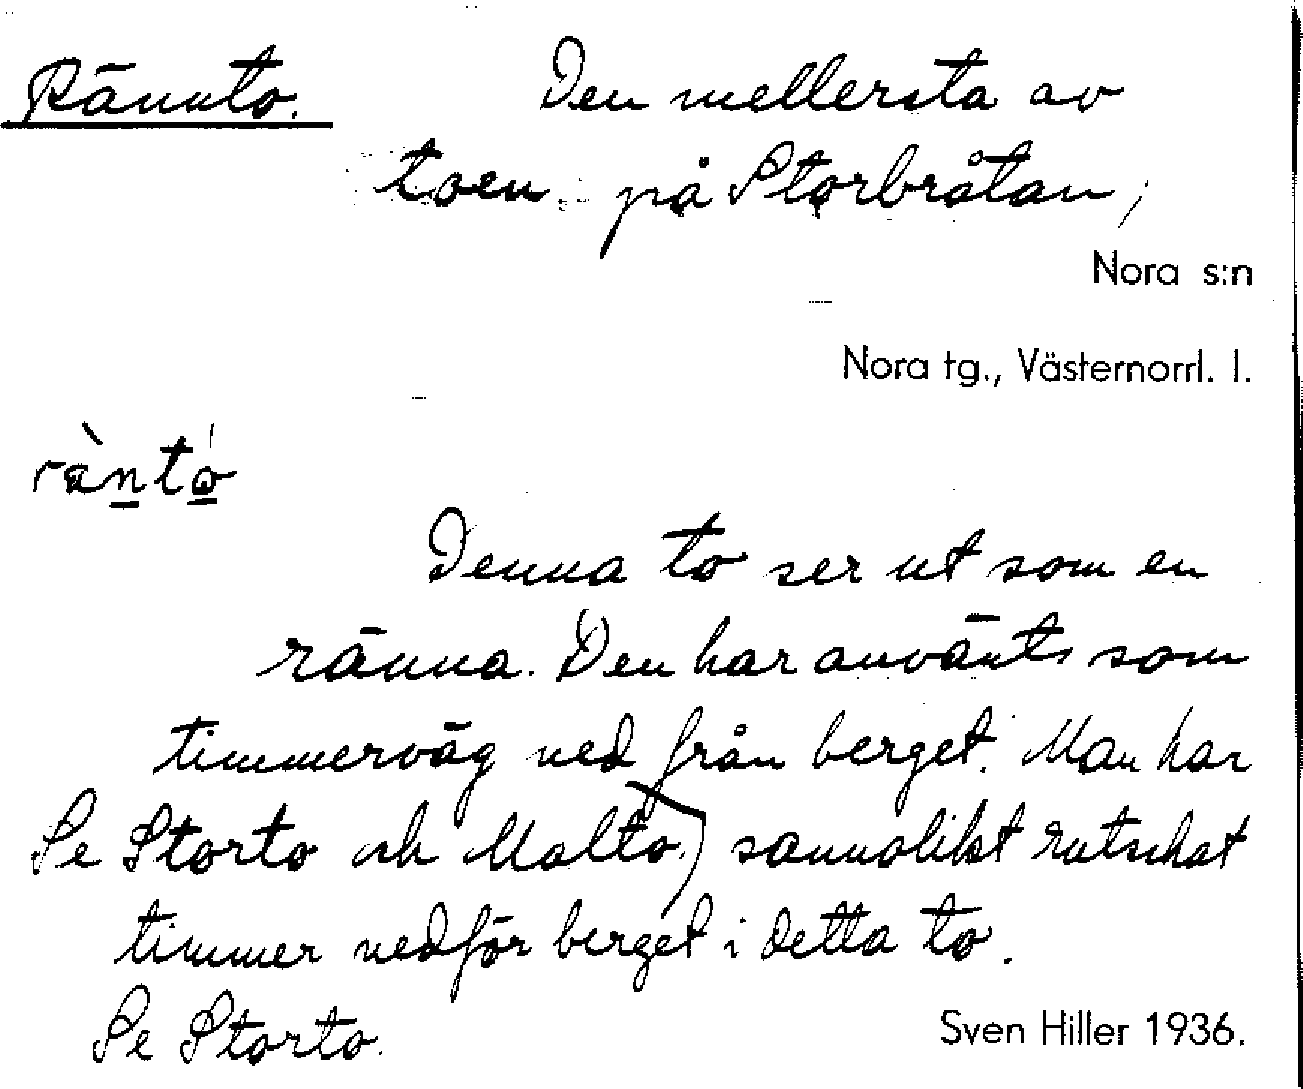 Rännto. Den mellersta av
toen på Storbråtan,
Nora s:n
Nora tg., Västernorrl. l.
ràntó
Denna to ser ut som en
ränna. Den har använts som
timmerväg ned från berget. Man har
Se Storto och Malto. sannolikt rutschat
timmer nedför berget i detta to.
Se Storto.
Sven Hiller 1936.